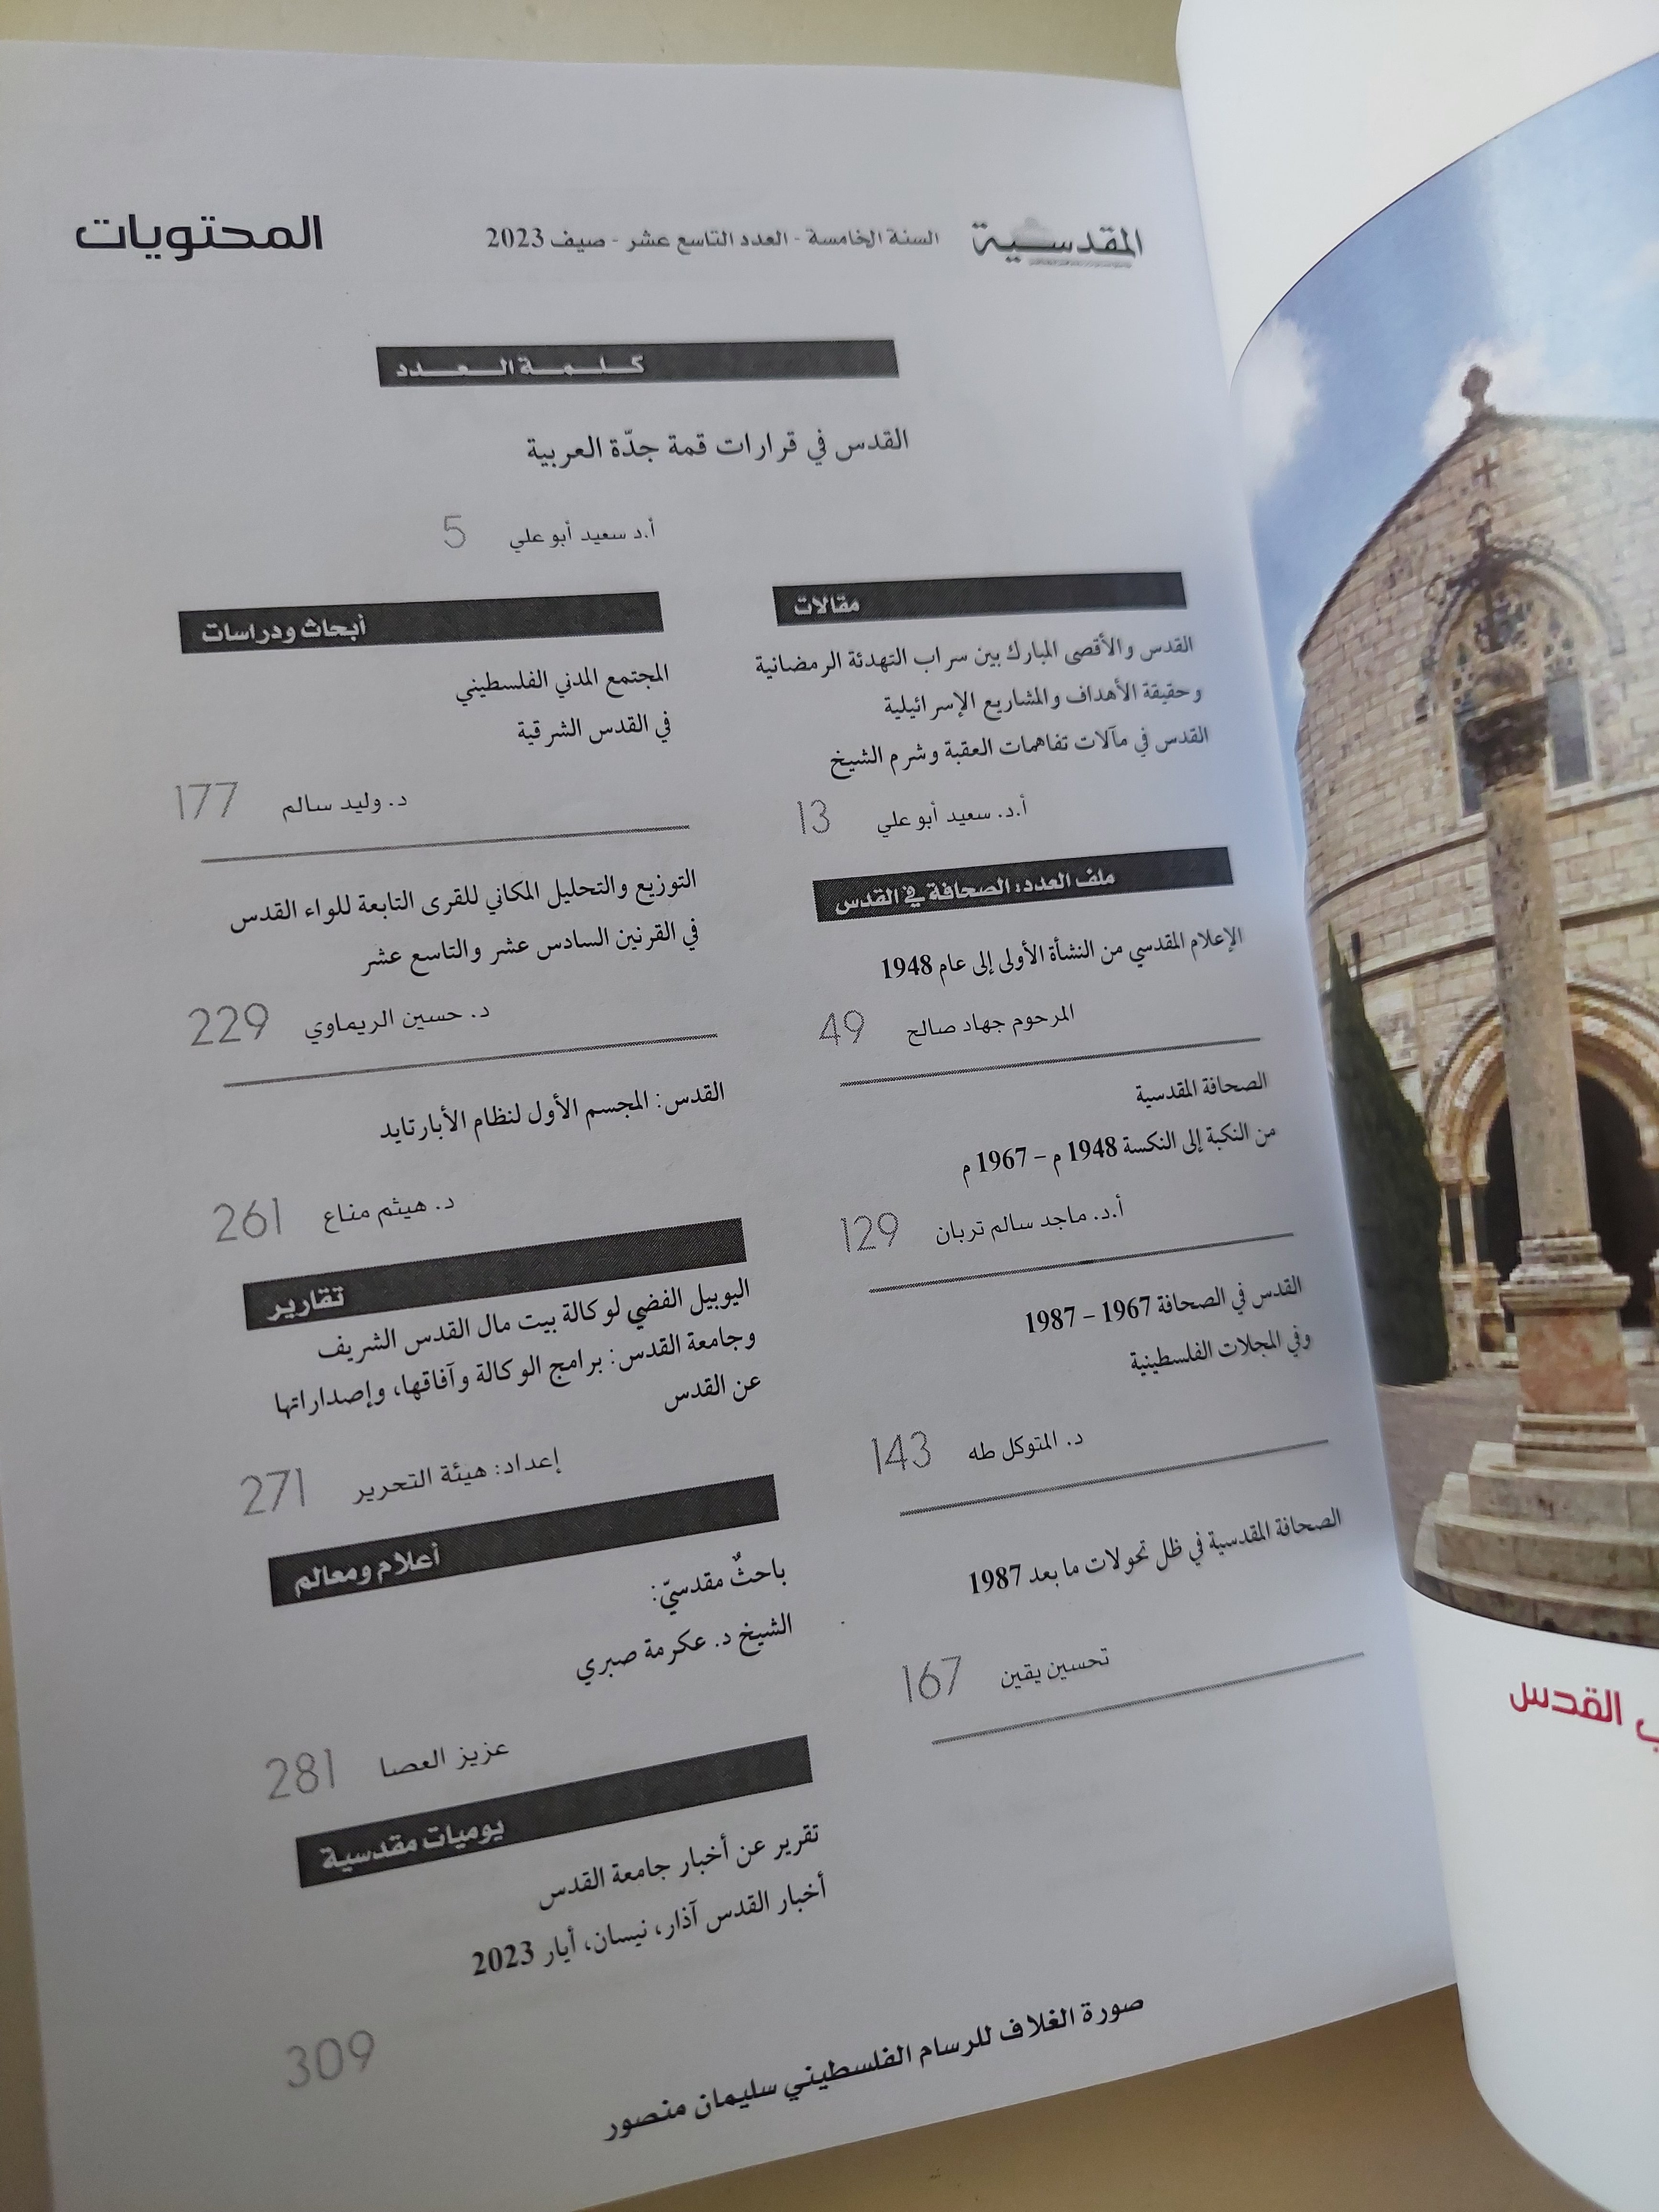 المقدسية
السنة الخامسة - العدد التاسع عشر - صيف 2023
المحتويات
كلمة العدد
القدس في قرارات قمة جدّة العربية
أ.د سعيد أبو علي 5
مقالات
القدس والأقصى المبارك بين سراب التهدئة الرمضانية
وحقيقة الأهداف والمشاريع الإسرائيلية
القدس في مآلات تفاهمات العقبة وشرم الشيخ
أ.د. سعيد أبو علي 13
ملف العدد: الصحافة في القدس
الإعلام المقدسي من النشأة الأولى إلى عام 1948
المرحوم جهاد صالح 49
الصحافة المقدسية
من النكبة إلى النكسة 1948 م – 1967 م
أ.د. ماجد سالم تربان 129
القدس في الصحافة 1967 – 1987
وفي المجلات الفلسطينية
د. المتوكل طه 143
الصحافة المقدسية في ظل تحولات ما بعد 1987
تحسين يقين 167
أبحاث ودراسات
المجتمع المدني الفلسطيني
في القدس الشرقية
د. وليد سالم 177
التوزيع والتحليل المكاني للقرى التابعة للواء القدس
في القرنين السادس عشر والتاسع عشر
د. حسين الريماوي 229
القدس: المجسم الأول لنظام الأبارتايد
د. هيثم مناع 261
تقارير
اليوبيل الفضي لوكالة بيت مال القدس الشريف
وجامعة القدس: برامج الوكالة وآفاقها، وإصداراتها
عن القدس
إعداد: هيئة التحرير 271
أعلام ومعالم
باحثٌ مقدسيّ:
الشيخ د. عكرمة صبري
عزيز العصا 281
يوميات مقدسية
تقرير عن أخبار جامعة القدس
أخبار القدس آذار، نيسان، أيار 2023
309
صورة الغلاف للرسام الفلسطيني سليمان منصور
القدس